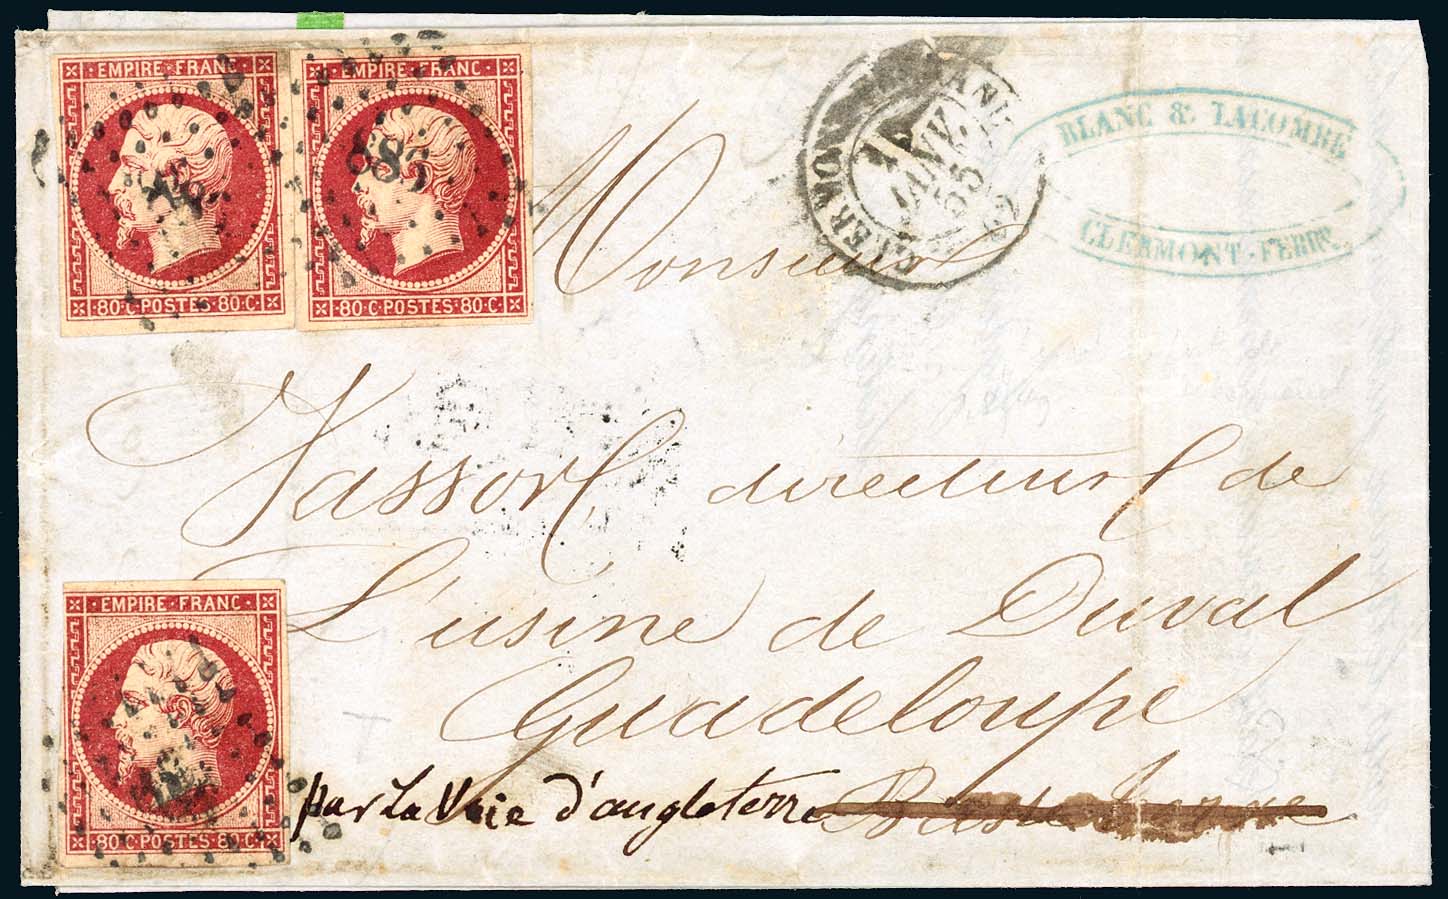 EMPIRE FRANC
80·C·POSTES·80·C
EMPIRE FRANC
883
80·C·POSTES·80·C
CLERMONT
JANV.
55
BLANC & LACOMBE
CLERMONT-FERRD.
Monsieur
Vassort directeur de
L'usine de Duval
Guadeloupe
par La Voie d'angleterre
EMPIRE FRANC
80·C·POSTES·80·C